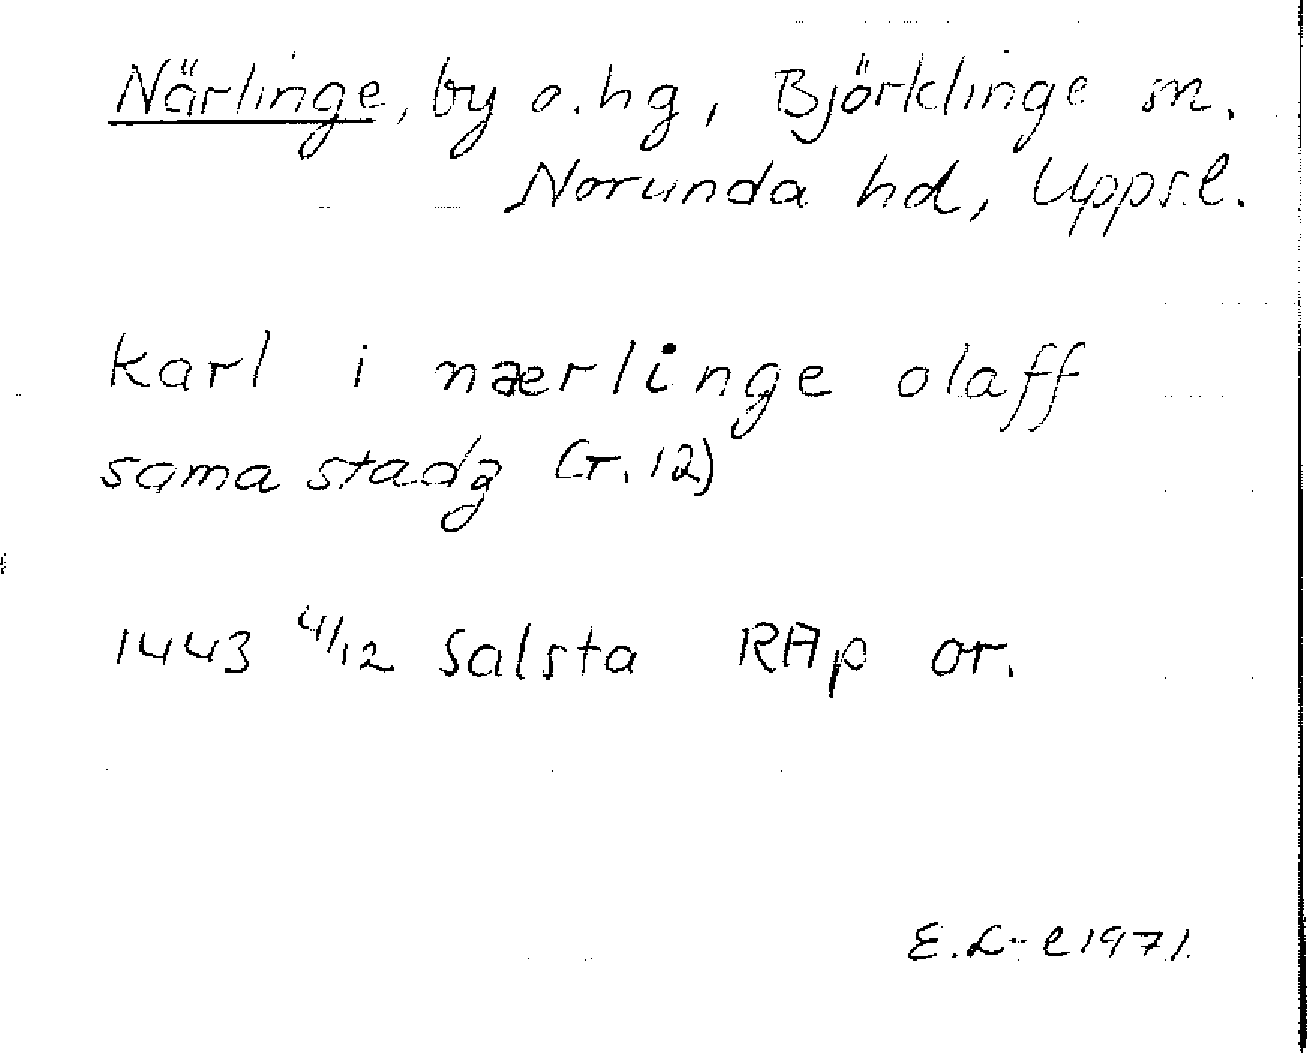 Närlinge, by o. hg, Björklinge sn.
Norunda hd, Uppsl.
karl i nærlinge olaff
sama stadz (r. 12)
1443 4/12 Salsta RAp or.
E. L-e 1971